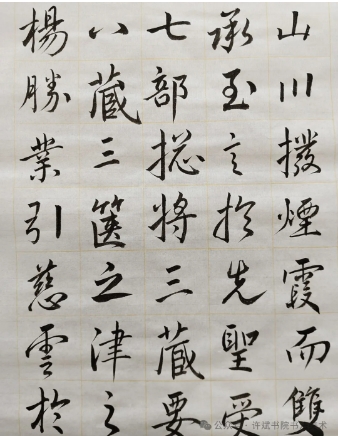 山川撥煙霞而雙
承至言於先聖受
七部揔將三藏要
八藏三篋之津之
楊勝業引慈雲於
公众号·许斌书院书法艺术